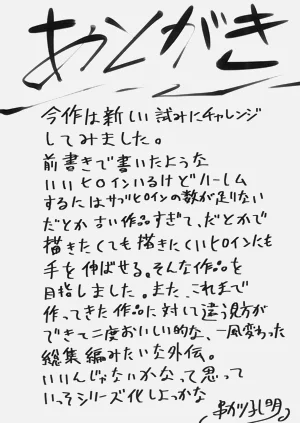 あとがき
今作は新しい試みにチャレンジ
してみました。
前書きで書いたような
いいヒロインいるけどハーレム
するにはサブヒロインの数が足りない
だとか古い作品すぎて、だとかで
描きたくても描きにくいヒロインにも
手を伸ばせる。そんな作品を
目指しました。また、これまで
作ってきた作品に対して違う見方が
できて二度おいしい的な、一風変わった
総集編みたいな外伝。
いいんじゃないかなって思って
いっそシリーズ化しよっかな